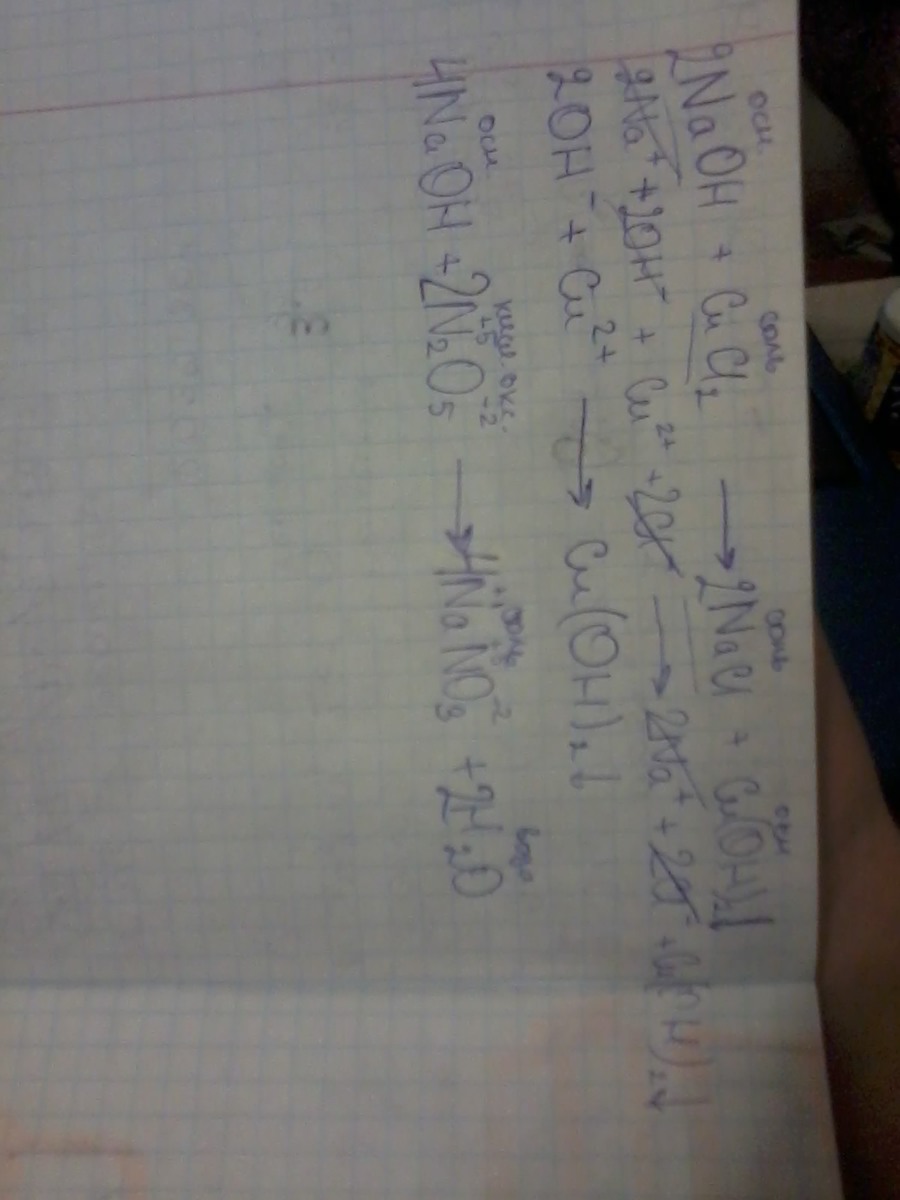 осн. соль соль осн
2NaOH + CuCl₂ → 2NaCl + Cu(OH)₂↓
2Na⁺ + 2OH⁻ + Cu²⁺ + 2Cl⁻ → 2Na⁺ + 2Cl⁻ + Cu(OH)₂↓
2OH⁻ + Cu²⁺ → Cu(OH)₂↓
осн кисл. окс. соль вода
4NaOH + 2N₂⁺⁵O₅⁻² → 4Na⁺¹N⁺⁵O₃⁻² + 2H₂O